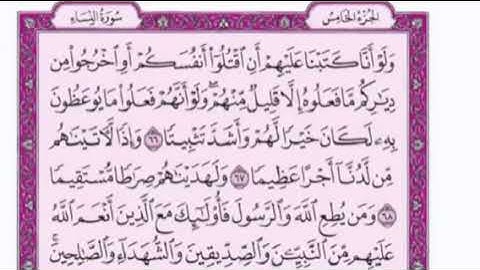 الجزء الخامس
سورة النساء
وَلَوْ أَنَّا كَتَبْنَا عَلَيْهِمْ أَنِ ٱقْتُلُوٓا۟ أَنفُسَكُمْ أَوِ ٱخْرُجُوا۟ مِن
دِيَٰرِكُم مَّا فَعَلُوهُ إِلَّا قَلِيلٌ مِّنْهُمْ ۖ وَلَوْ أَنَّهُمْ فَعَلُوا۟ مَا يُوعَظُونَ
بِهِۦ لَكَانَ خَيْرًا لَّهُمْ وَأَشَدَّ تَثْبِيتًا ٦٦ وَإِذًا لَّءَاتَيْنَٰهُم
مِّن لَّدُنَّآ أَجْرًا عَظِيمًا ٦٧ وَلَهَدَيْنَٰهُمْ صِرَٰطًا مُّسْتَقِيمًا
٦٨ وَمَن يُطِعِ ٱللَّهَ وَٱلرَّسُولَ فَأُو۟لَٰٓئِكَ مَعَ ٱلَّذِينَ أَنْعَمَ ٱللَّهُ
عَلَيْهِم مِّنَ ٱلنَّبِيِّۦنَ وَٱلصِّدِّيقِينَ وَٱلشُّهَدَآءِ وَٱلصَّٰلِحِينَ ۚ